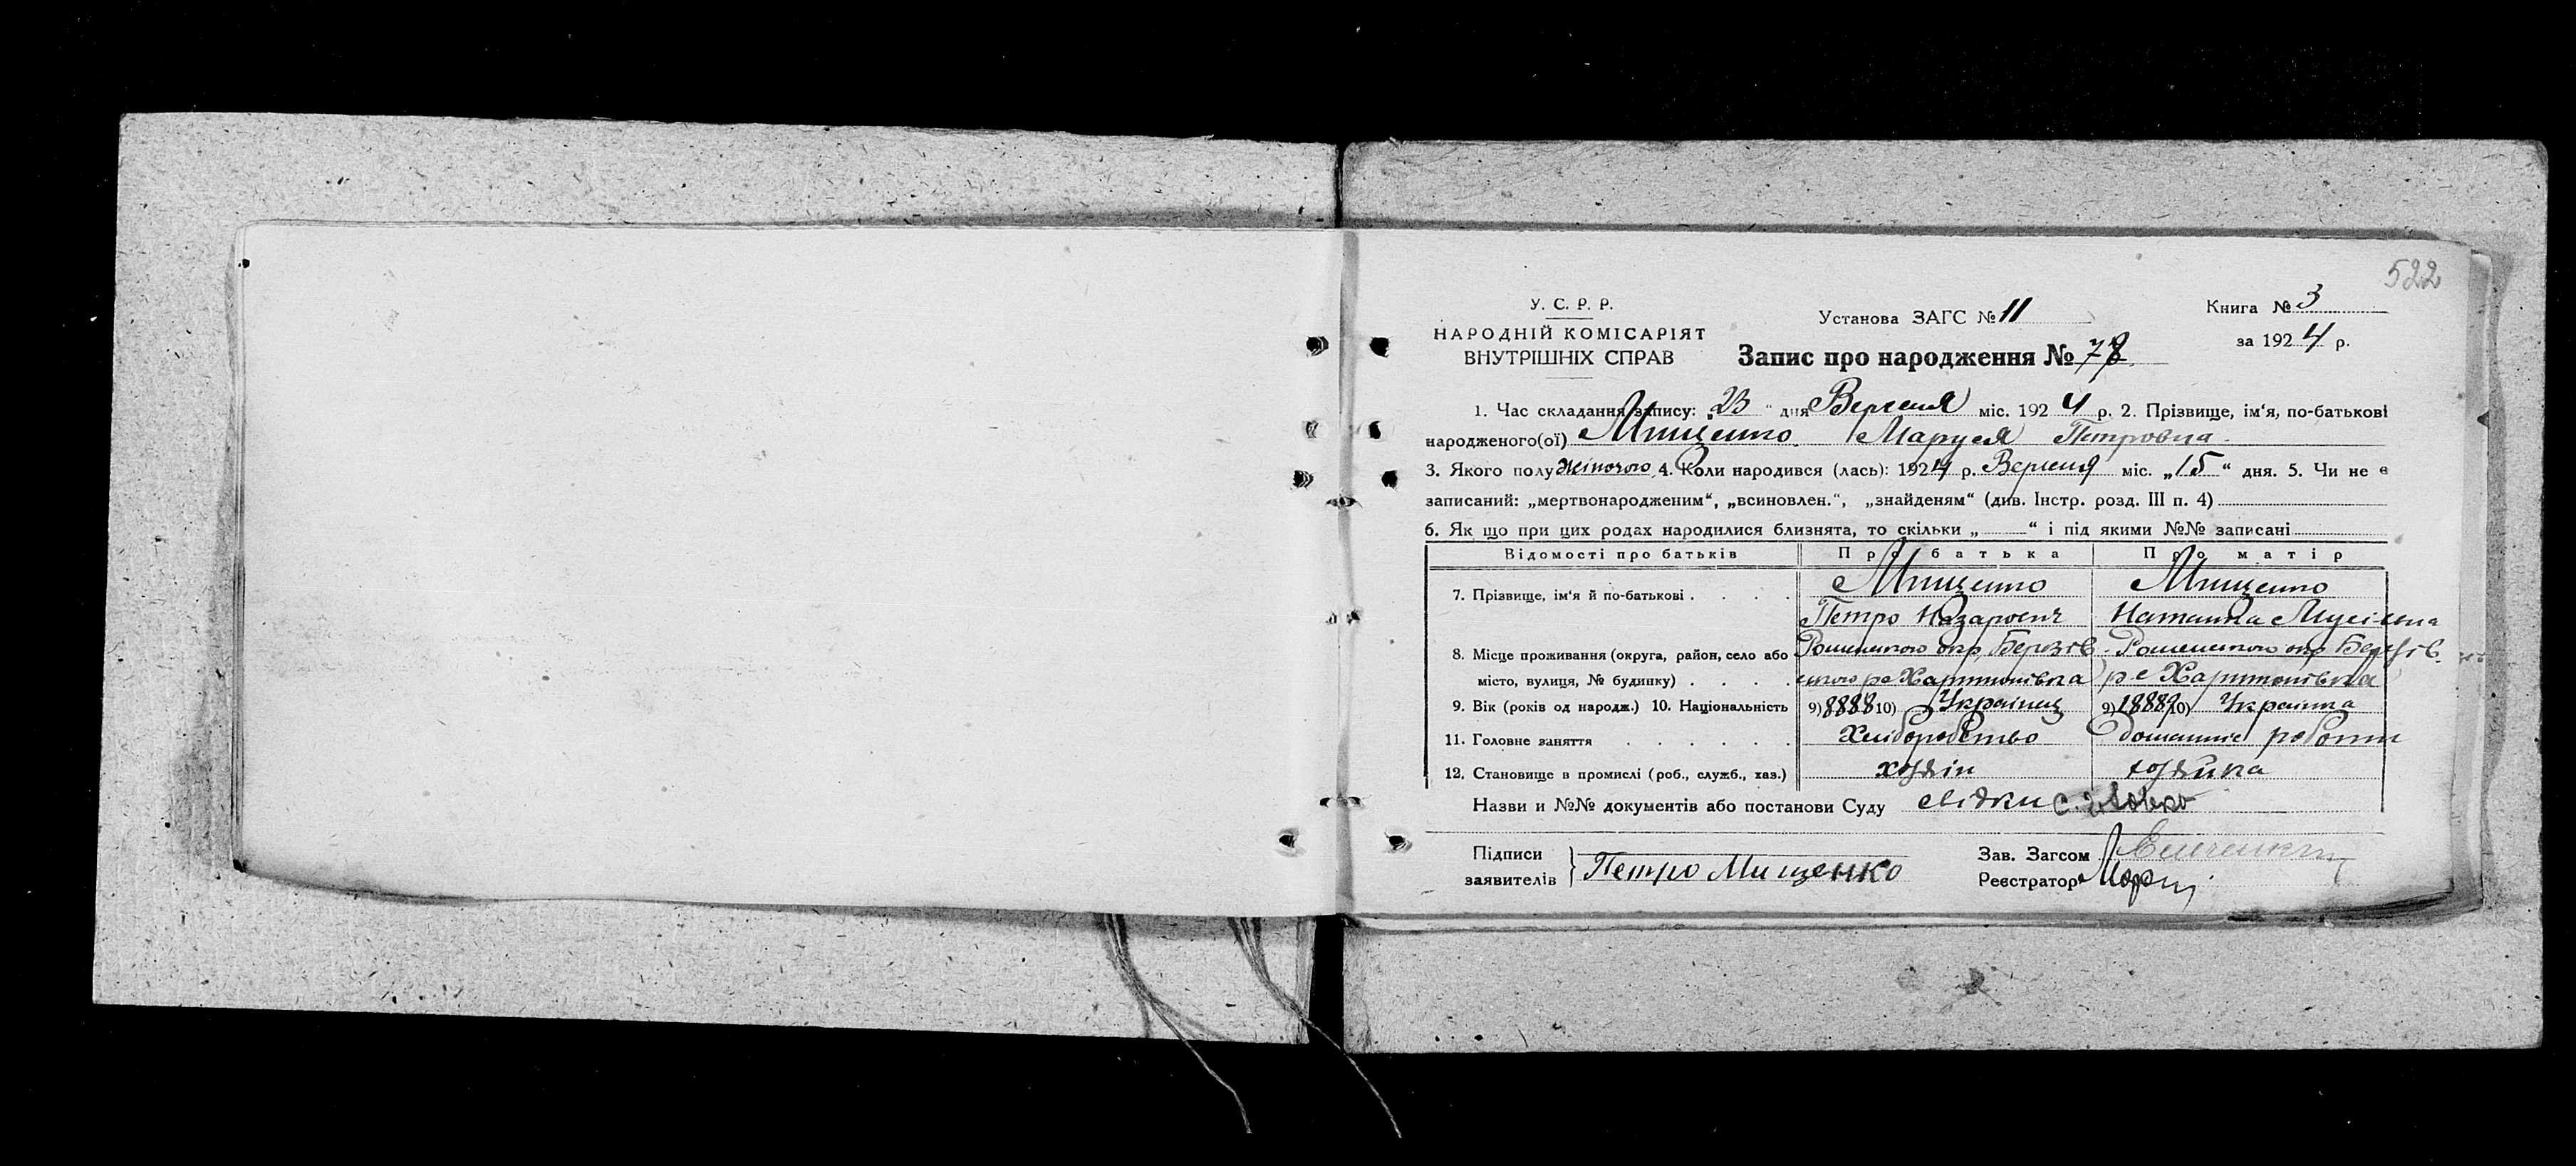 522
У. С. Р. Р.
НАРОДНІЙ КОМІСАРІЯТ
ВНУТРІШНІХ СПРАВ
Установа ЗАГС № 11
Книга № 3
за 1924 р.
Запис про народження № 78
1. Час складання запису: „23“ дня Вересня міс. 1924 р. 2. Прізвище, ім'я, по-батькові
народженого(ої) Мищенко Маруся Петровна
3. Якого полу жіночого 4. Коли народився (лась): 1924 р. Вересня міс. „15“ дня. 5. Чи не є
записаний: „мертвонародженим“, „всиновлен.“, „знайденям“ (див. Інстр. розд. III п. 4)
6. Як що при цих родах народилися близнята, то скільки „ “ і під якими №№ записані
Відомості про батьків Про батька Про матір
7. Прізвище, ім'я й по-батькові Мищенко Мищенко
Петро Назарович Наталка Мусіївна
8. Місце проживання (округа, район, село або Роменского окр Березів Роменского окр Березів
місто, вулиця, № будинку) ского р с Харитонівка р с Харитонівка
9. Вік (років од народж.) 10. Національність 9) 1888 10) Українець 9) 1888 10) Українка
11. Головне заняття Хліборобство домашні роботи
12. Становище в промислі (роб., служб., хаз.) хозяін хозяйка
Назви и №№ документів або постанови Суду свідки
Підписи
заявителів Петро Мищенко
Зав. Загсом
Реєстратор